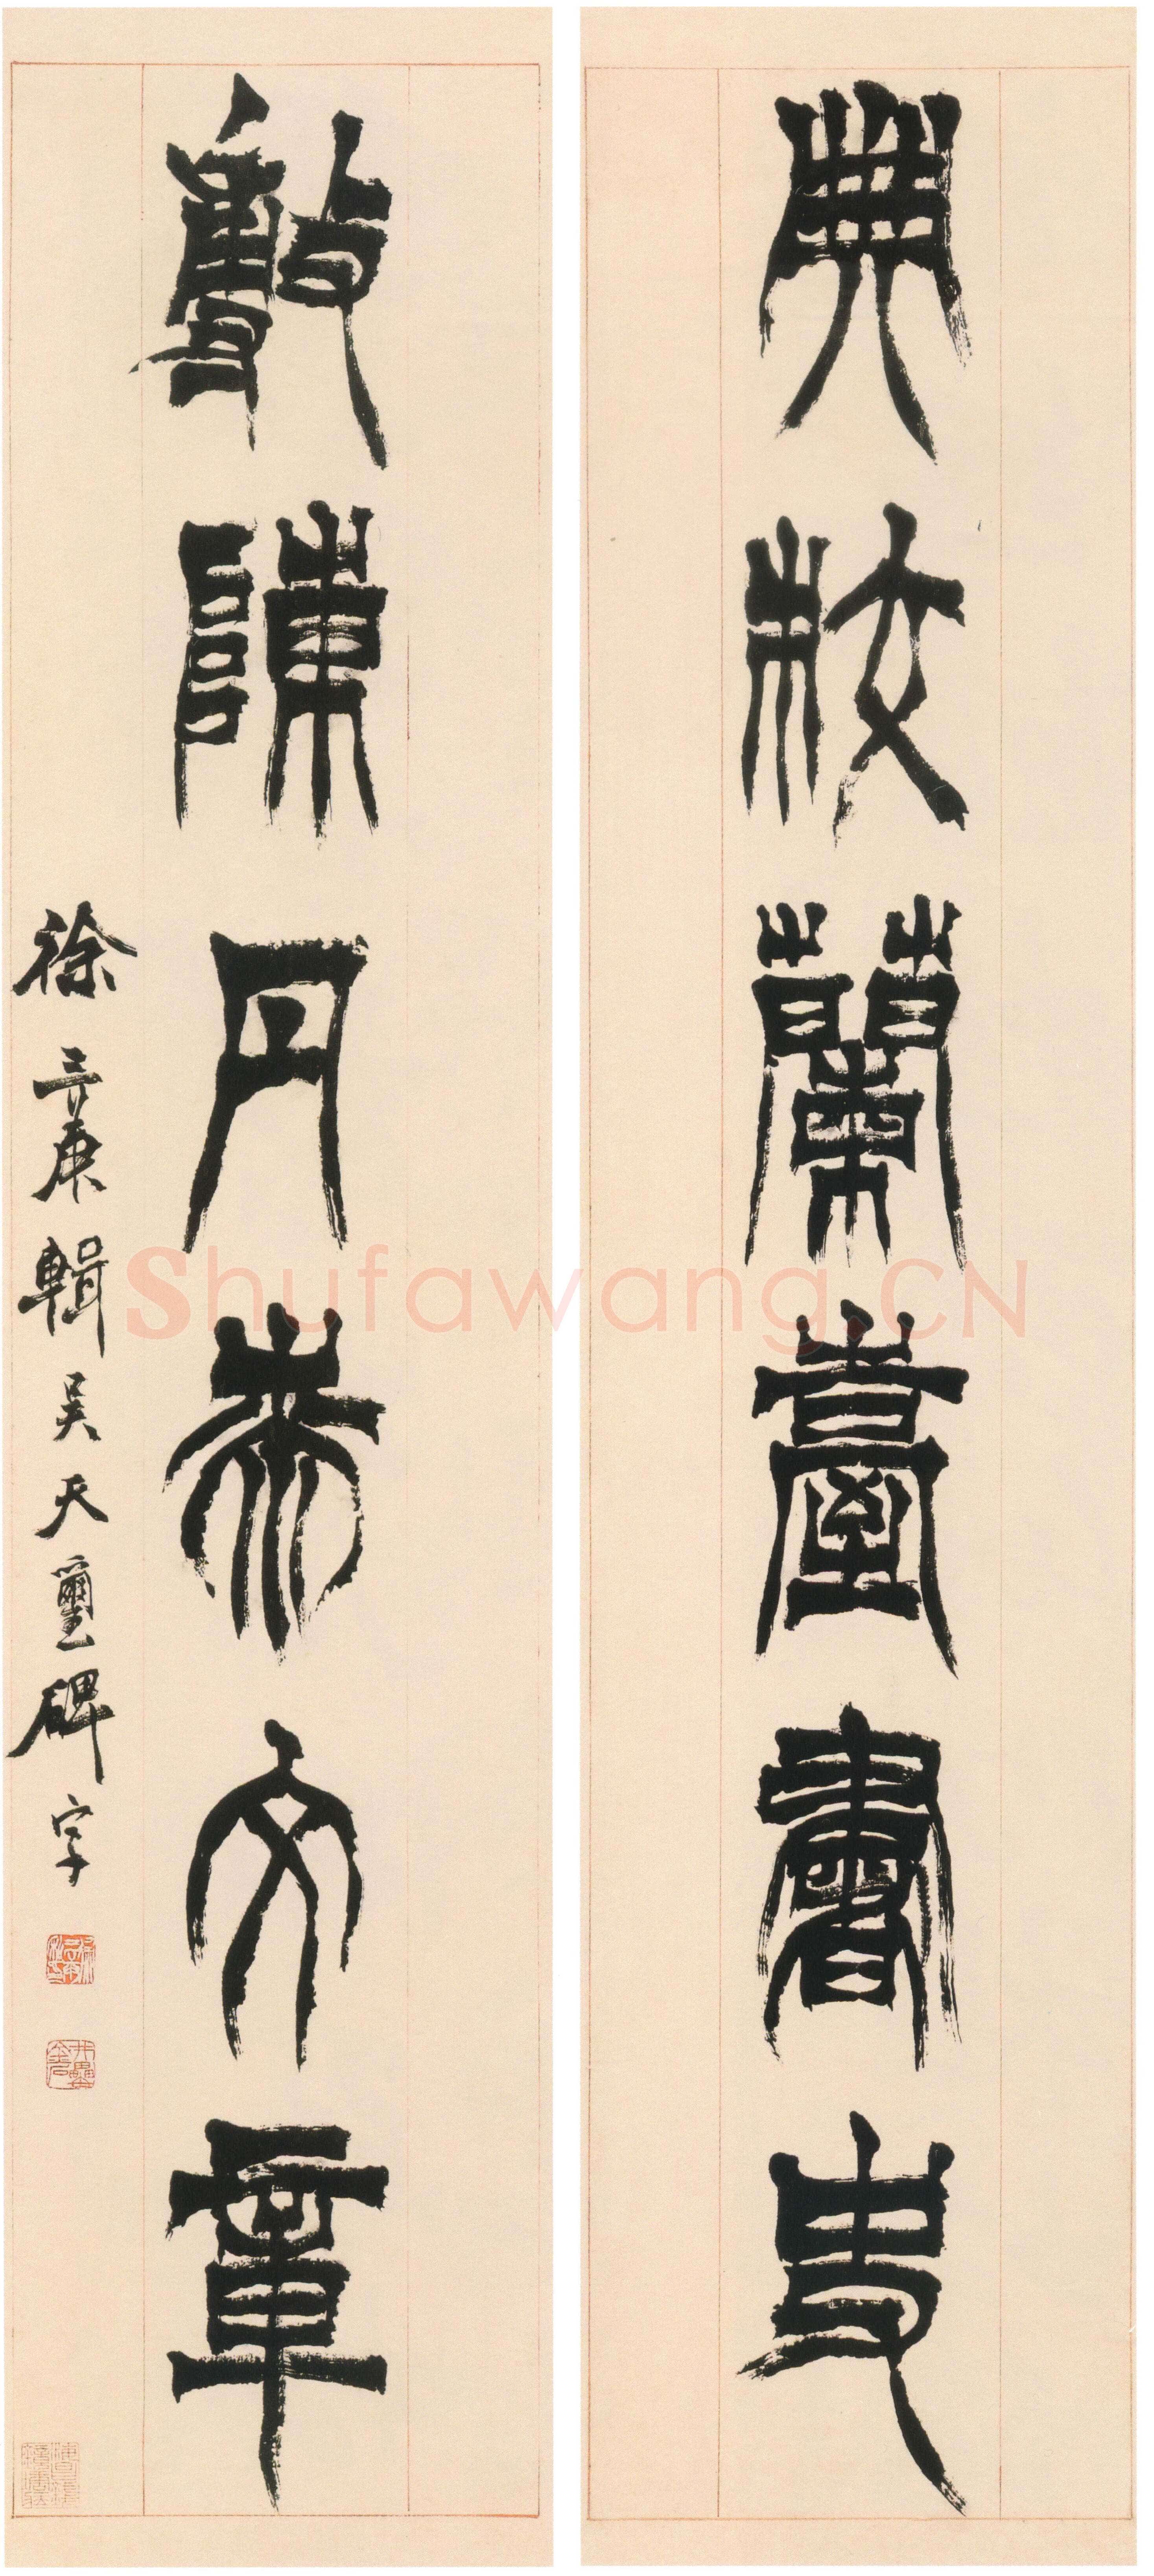 典校蘭臺書史
敷陳丹柰文章
徐三庚輯吴天璽碑字
Shufawang.CN